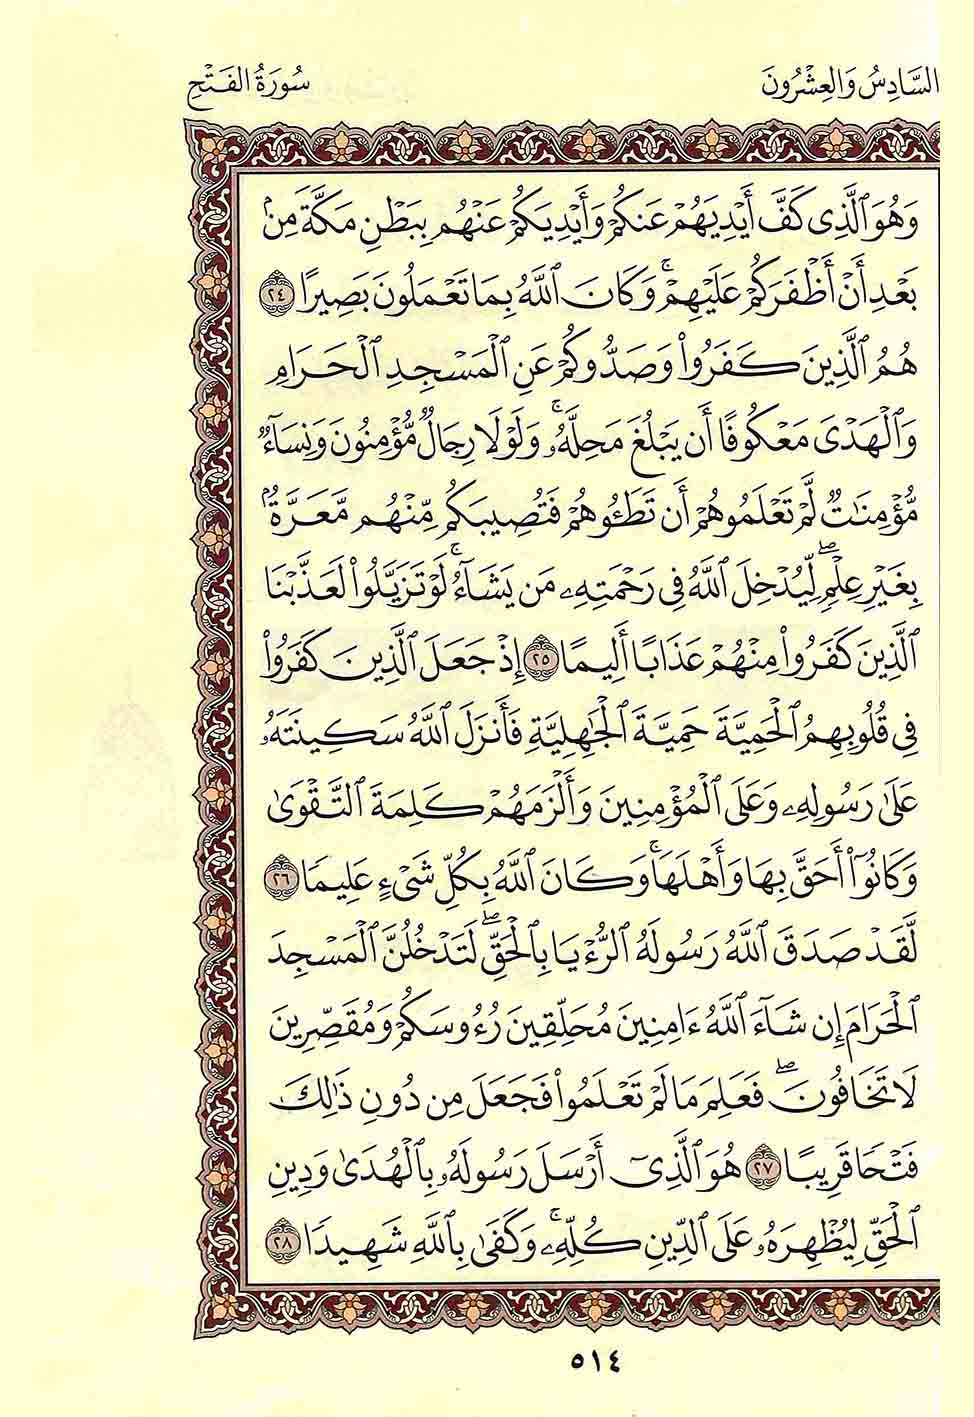 السَّادِسُ وَالعِشْرُونَ
سُورَةُ الفَتْحِ
وَهُوَ ٱلَّذِى كَفَّ أَيْدِيَهُمْ عَنكُمْ وَأَيْدِيَكُمْ عَنْهُم بِبَطْنِ مَكَّةَ مِنۢ
بَعْدِ أَنْ أَظْفَرَكُمْ عَلَيْهِمْ ۚ وَكَانَ ٱللَّهُ بِمَا تَعْمَلُونَ بَصِيرًا ٢٤
هُمُ ٱلَّذِينَ كَفَرُوا۟ وَصَدُّوكُمْ عَنِ ٱلْمَسْجِدِ ٱلْحَرَامِ
وَٱلْهَدْىَ مَعْكُوفًا أَن يَبْلُغَ مَحِلَّهُۥ ۚ وَلَوْلَا رِجَالٌ مُّؤْمِنُونَ وَنِسَآءٌ
مُّؤْمِنَـٰتٌ لَّمْ تَعْلَمُوهُمْ أَن تَطَـُٔوهُمْ فَتُصِيبَكُم مِّنْهُم مَّعَرَّةٌۢ
بِغَيْرِ عِلْمٍ ۖ لِّيُدْخِلَ ٱللَّهُ فِى رَحْمَتِهِۦ مَن يَشَآءُ ۚ لَوْ تَزَيَّلُوا۟ لَعَذَّبْنَا
ٱلَّذِينَ كَفَرُوا۟ مِنْهُمْ عَذَابًا أَلِيمًا ٢٥ إِذْ جَعَلَ ٱلَّذِينَ كَفَرُوا۟
فِى قُلُوبِهِمُ ٱلْحَمِيَّةَ حَمِيَّةَ ٱلْجَـٰهِلِيَّةِ فَأَنزَلَ ٱللَّهُ سَكِينَتَهُۥ
عَلَىٰ رَسُولِهِۦ وَعَلَى ٱلْمُؤْمِنِينَ وَأَلْزَمَهُمْ كَلِمَةَ ٱلتَّقْوَىٰ
وَكَانُوٓا۟ أَحَقَّ بِهَا وَأَهْلَهَا ۚ وَكَانَ ٱللَّهُ بِكُلِّ شَىْءٍ عَلِيمًا ٢٦
لَّقَدْ صَدَقَ ٱللَّهُ رَسُولَهُ ٱلرُّءْيَا بِٱلْحَقِّ ۖ لَتَدْخُلُنَّ ٱلْمَسْجِدَ
ٱلْحَرَامَ إِن شَآءَ ٱللَّهُ ءَامِنِينَ مُحَلِّقِينَ رُءُوسَكُمْ وَمُقَصِّرِينَ
لَا تَخَافُونَ ۖ فَعَلِمَ مَا لَمْ تَعْلَمُوا۟ فَجَعَلَ مِن دُونِ ذَٰلِكَ
فَتْحًا قَرِيبًا ٢٧ هُوَ ٱلَّذِىٓ أَرْسَلَ رَسُولَهُۥ بِٱلْهُدَىٰ وَدِينِ
ٱلْحَقِّ لِيُظْهِرَهُۥ عَلَى ٱلدِّينِ كُلِّهِۦ ۚ وَكَفَىٰ بِٱللَّهِ شَهِيدًا ٢٨
٥١٤